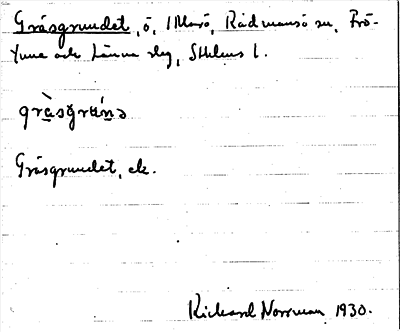 Gräsgrundet, ö, i Marö, Rådmansö sn, Frö-
tuna och Länna slg, Sthlms l.
gràsgrún̠ə
Gräsgrundet, ek.
Rickard Norrman 1930.